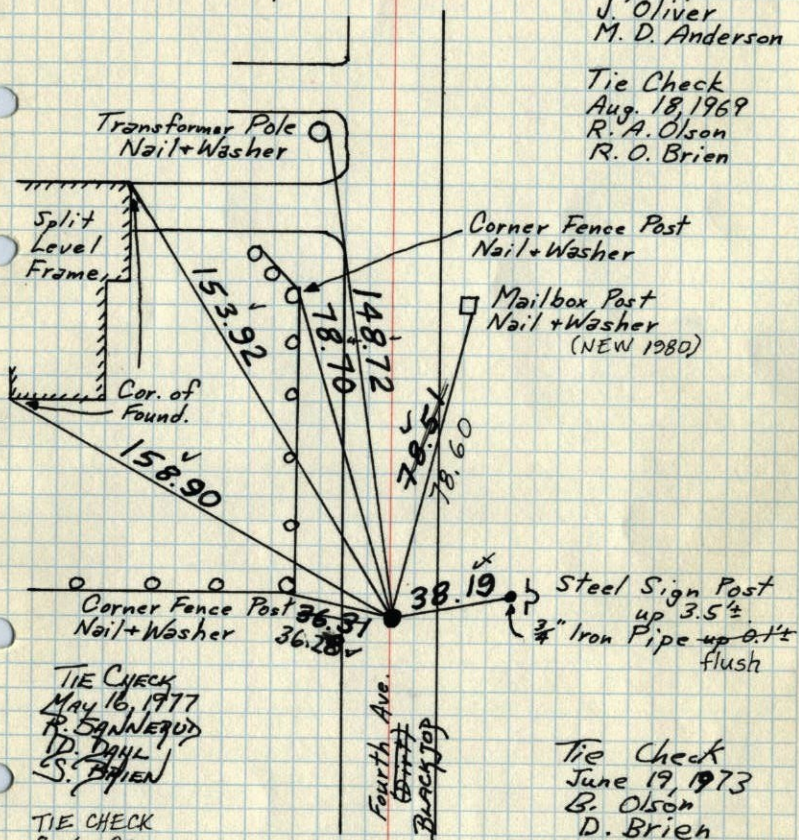 J. Oliver
M. D. Anderson
Tie Check
Aug. 18, 1969
R. A. Olson
R. O. Brien
Transformer Pole
Nail + Washer
Split
Level
Frame
Corner Fence Post
Nail + Washer
Mailbox Post
Nail + Washer
(NEW 1980)
153.92
78.70
148.72
78.51
78.60
Cor. of
Found.
158.90
38.19
Steel Sign Post
up 3.5'±
3/4" Iron Pipe up 0.1'±
flush
Corner Fence Post
Nail + Washer
36.31
36.28
TIE CHECK
May 16, 1977
D. DAHL
S. BRIEN
Fourth Ave.
Dirt
BLACKTOP
Tie Check
June 19, 1973
B. Olson
D. Brien
TIE CHECK